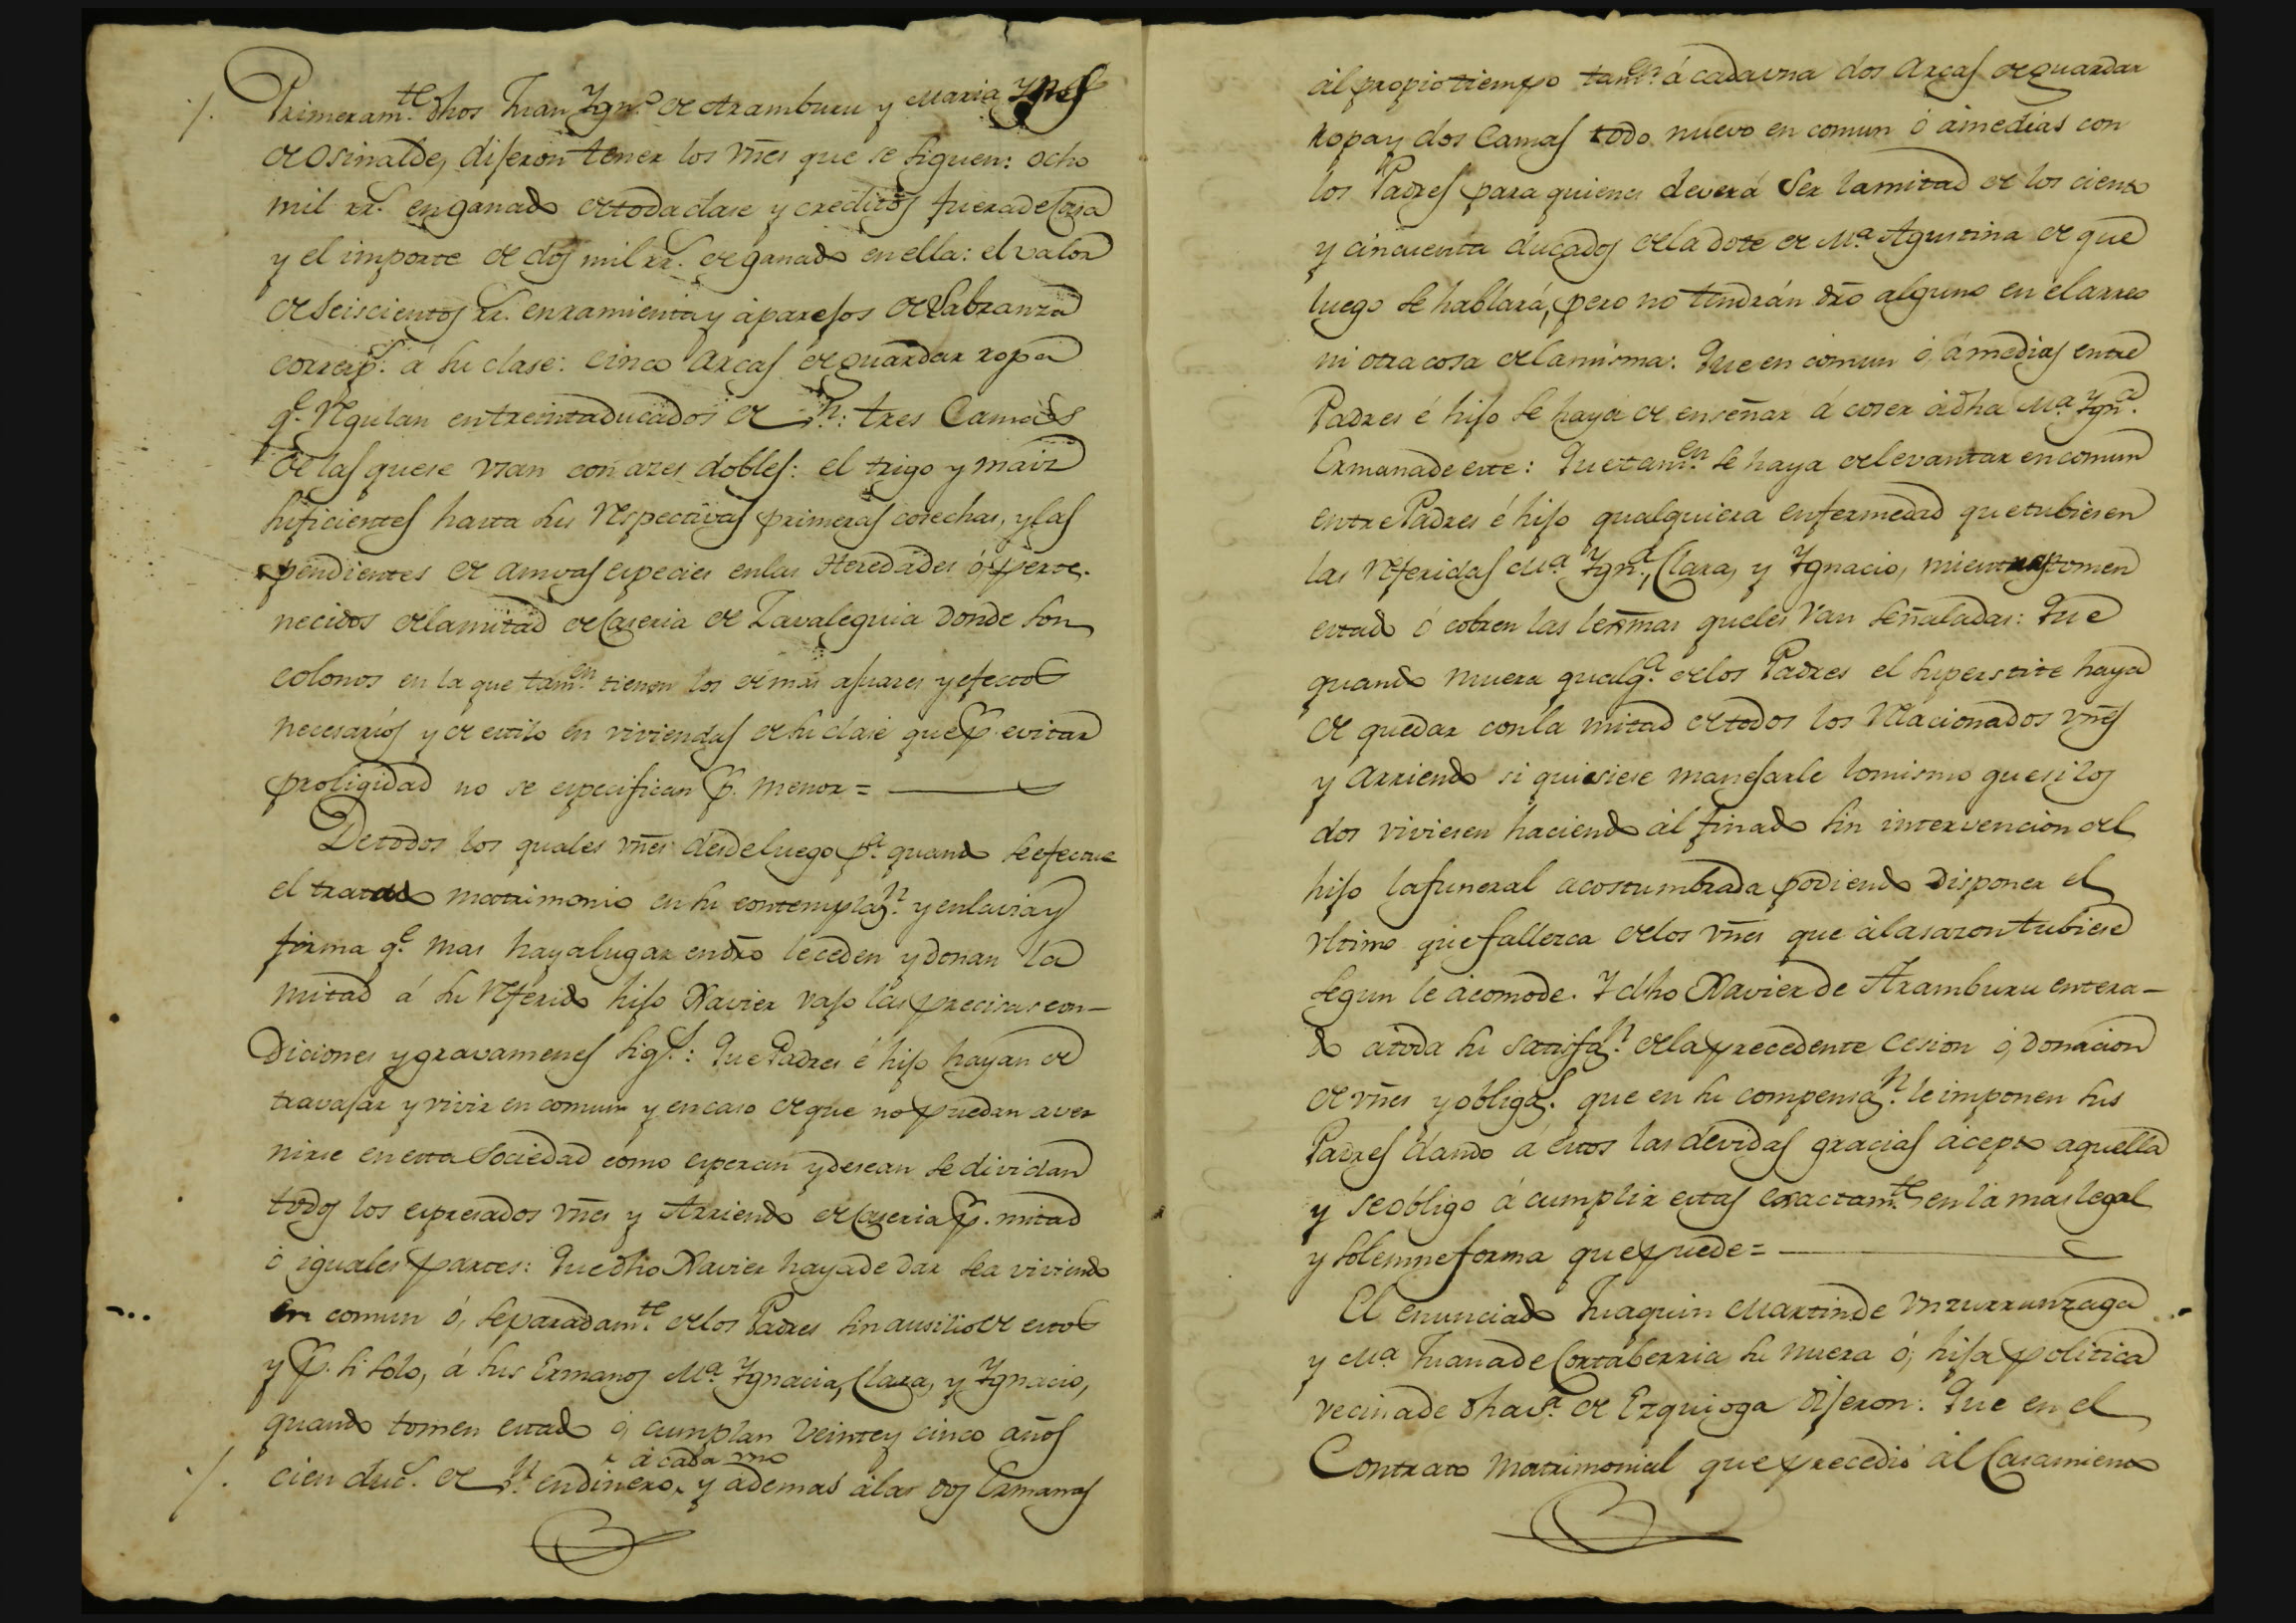 Primeram.te dhos Juan Ygn.o de Aramburu y Maria Ynes
de Osinalde, dijeron tener los vñes que se siguen: ocho
mil rr.s en ganado de toda clase y creditos fuera de Casa
y el importe de dos mil rr.s de ganado en ella: el valor
de seiscientos rr.s en ramienta y aparejos de Labranza
corresp.s á su clase: cinco Arcas de guardar ropa
q.e regulan en treinta ducados de v.n: tres Camas
de las que se usan con azes dobles: el trigo y maiz
suficientes hasta sus respectivas primeras cosechas, y las
pendientes de amvas especies en las Heredades ó, perte-
necidos de la mitad de Caseria de Zavaleguia donde son
colonos en la que tam.en tienen los demas ajuares y efectos
necesarios y de estilo en viviendas de su clase que p.r evitar
proligidad no se especifican p.r menor =
De todos los quales vñes desde luego p.a quando se efectue
el tratado matrimonio en su contemplaz.n y en la via y
forma q.e mas haya lugar en dro le ceden y donan la
mitad á su referido hijo Xavier vajo las precisas con-
diciones y gravamenes sig.s: Que Padres é hijo hayan de
travajar y vivir en comun y en caso de que no puedan aver
nirse en esta Sociedad como esperan y desean se dividan
todos los espresados vñes y Arriendo de Caseria p.r mitad
ó iguales partes: Que dho Xavier haya de dar sea viviendo
en comun ó, separadam.te de los Padres sin ausilio de estos
y p.r si solo, á sus Ermanos M.a Ygnacia, Clara, y Ygnacio,
quando tomen estado ó, cumplan veinte y cinco años
á cada uno
cien duc.s de v.n en dinero, y ademas á las dos Ermanas
al propio tiempo tam.en á cada una dos Arcas de guardar
ropa y dos Camas todo nuevo en comun ó á medias con
los Padres para quienes deverá ser la mitad de los ciento
y cincuenta ducados de la dote de M.a Agustina de que
luego se hablará, pero no tendrán dro alguno en el arreo
ni otra cosa de la misma: Que en comun ó, á medias entre
Padres é hijo se haya de enseñar á coser á dha M.a Ygn.a
Ermana de este: Que tam.en se haya de levantar en comun
entre Padres é hijo qualquiera enfermedad que tubiesen
las referidas M.a Ygn.a, Clara, y Ygnacio, mientras tomen
estado ó cobren las lexmas que les van señaladas: Que
quando muera qualq.a de los Padres el superstite haya
de quedar con la mitad de todos los relacionados vñes
y Arriendo si quisiese manejarle lo mismo que si los
dos viviesen haciendo al finado sin intervencion del
hijo la funeral acostumbrada podiendo disponer el
ultimo que fallezca de los vñes que á la sazon tubiese
segun le acomode. Y dho Xavier de Aramburu entera-
do á toda su satisfaz.n de la precedente cesion ó, donacion
de vñes y obligaz.s que en su compensaz.n le imponen sus
Padres dando á estos las devidas gracias acepto aquella
y se obligo á cumplir estas exactam.te en la mas legal
y solemne forma que puede =
El enunciado Juaquin Martin de Vnzurrunzaga
y M.a Juana de Cortaberria su nuera ó, hija politica
vecina de dha v.a de Ezquioga dijeron: Que en el
Contrato Matrimonial que precedió al Casamiento